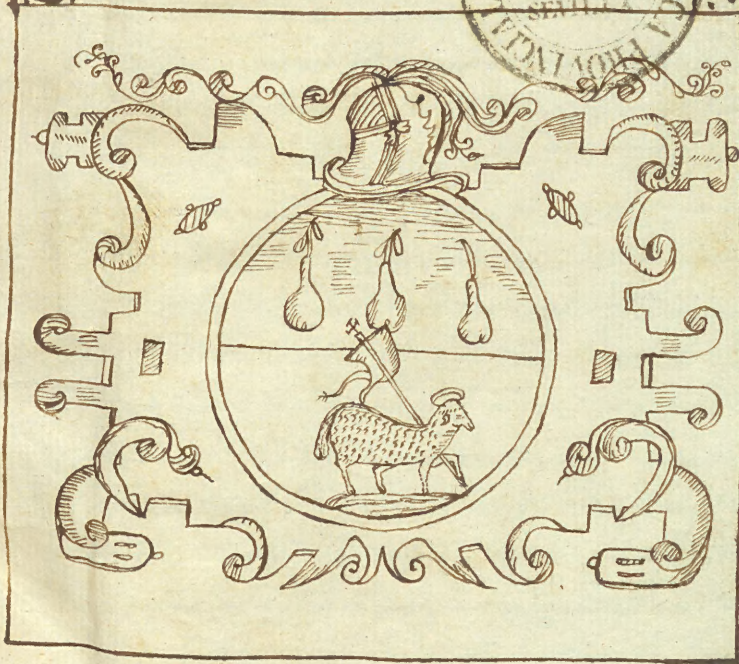 SEVILLA
CA PROVINCIA